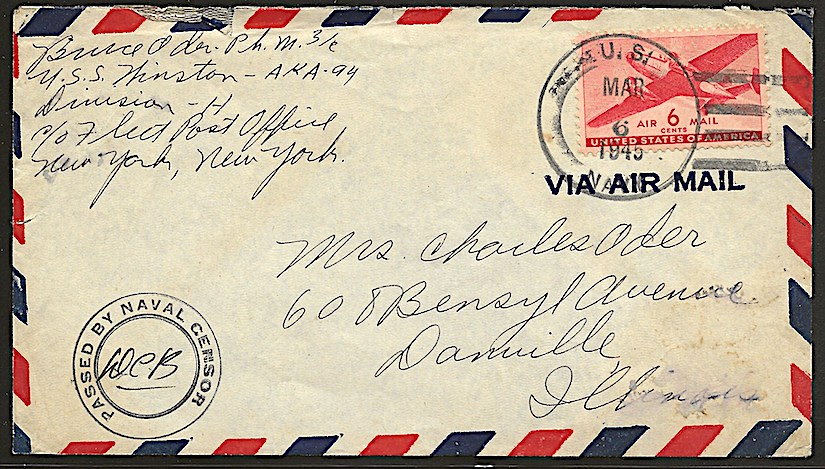 Bruce Oder. Ph. M. 3/c
U.S.S. Winston - AKA-94
Division - H
c/o Fleet Post Office
New York, New York.
U.S.
MAR
6
1945
NAVY
AIR 6 MAIL
CENTS
UNITED STATES OF AMERICA
VIA AIR MAIL
Mrs. Charles Oder
608 Bensyl Avenue.
Danville,
Illinois
PASSED BY NAVAL CENSOR
WCB